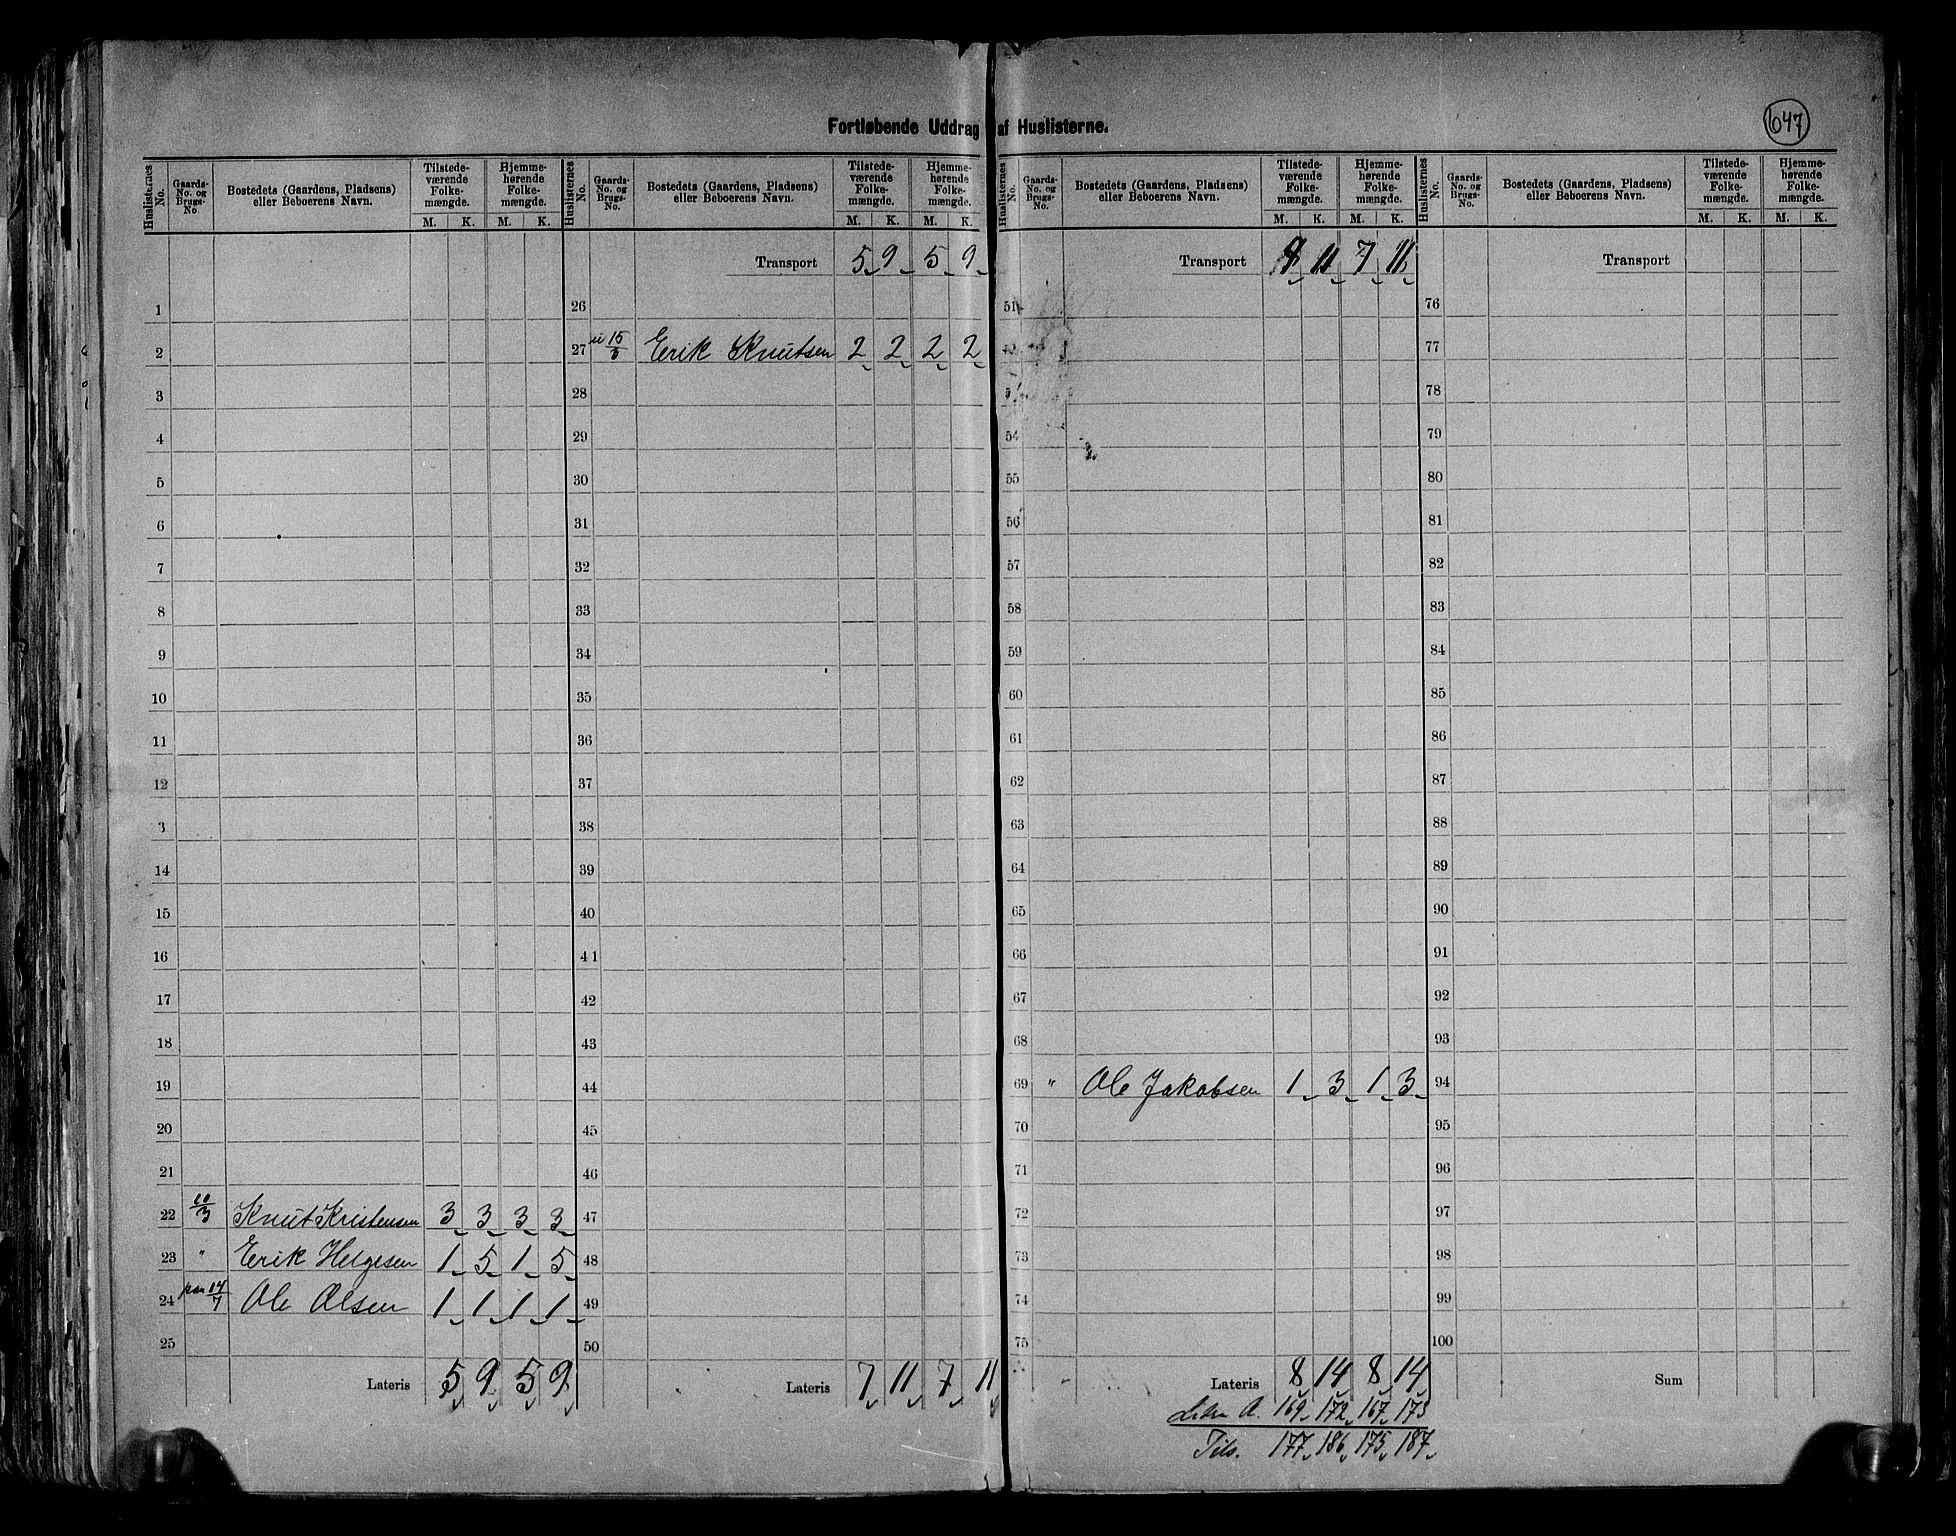 Fortløbende Uddrag af Huslisterne.
647
Huslisternes No.
Gaards-No. og Brugs-No
Bostedets (Gaardens, Pladsens) eller Beboerens Navn.
Tilstedeværende Folkemængde. M. K.
Hjemmehørende Folkemængde. M. K.
1
2
3
4
5
6
7
8
9
10
11
12
3
14
15
16
17
18
19
20
21
22 10/3 Knut Kristensen 3 3 3 3
23 " Erik Helgesen 1 5 1 5
24 14/7 Ole Olsen 1 1 1 1
25
Lateris 5 9 5 9
Huslisternes No.
Gaards-No. og Brugs-No.
Bostedets (Gaardens, Pladsens) eller Beboerens Navn.
Tilstedeværende Folkemængde. M. K.
Hjemmehørende Folkemængde. M. K.
Transport 5 9 5 9
26
27 15/3 Erik Knutsen 2 2 2 2
28
29
30
31
32
33
34
35
36
37
38
39
40
41
42
43
44
45
46
47
48
49
50
Lateris 7 11 7 11
Huslisternes No.
Gaards-No. og Brugs-No.
Bostedets (Gaardens, Pladsens) eller Beboerens Navn.
Tilstedeværende Folkemængde. M. K.
Hjemmehørende Folkemængde. M. K.
Transport 11 7 11
51
54
55
56
57
58
59
60
61
62
63
64
65
66
67
68
69 " Ole Jakobsen 1 3 1 3
70
71
72
73
74
75
Lateris 8 14 8 14
Litra A. 169 172 167 173
Tils. 177 186 175 187
Huslisternes No.
Gaards-No. og Brugs-No.
Bostedets (Gaardens, Pladsens) eller Beboerens Navn.
Tilstedeværende Folkemængde. M. K.
Hjemmehørende Folkemængde. M. K.
Transport
76
77
78
79
80
81
82
83
84
85
86
87
88
89
90
91
92
93
94
95
96
97
98
99
100
Sum